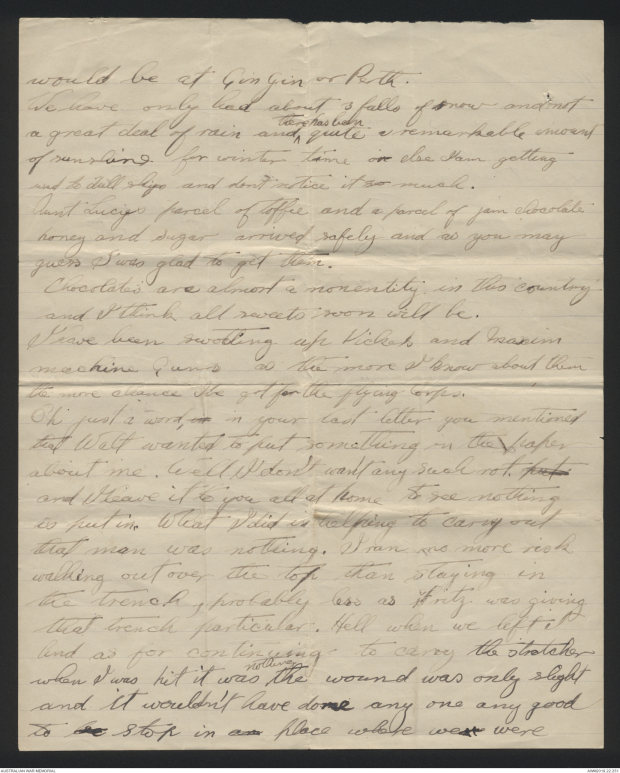 would be at GinGin or Perth.
We have only had about 3 falls of snow and not
there has been
a great deal of rain and quite a remarkable amount
of sunshine for winter time or else I am getting
used to dull skys and don't notice it so much.
Aunt Lucy's parcel of toffie and a parcel of jam chocolate
honey and sugar arrived safely and as you may
guess I was glad to get them.
Chocolates are almost a nonentity in this country
and I think all sweets soon will be.
I have been swotting up Vickers and Maxim
machine Guns as the more I know about them
the more chance I've got for the flying Corps.
Oh just a word, in in your last letter you mentioned
that Walt wanted to put something in the paper
about me. Well I don't want any such rot put
and I leave it to you all at home to see nothing
is put in. What I did in helping to carry out
that man was nothing. I ran no more risk
walking out over the top than staying in
the trench, probably less as Fritz was giving
that trench particular Hell when we left it
And as for continuing to carry the stretcher
nothing
when I was hit it was the wound was only slight
and it wouldn't have done any one any good
to be stop in a place where we were
AUSTRALIAN WAR MEMORIAL